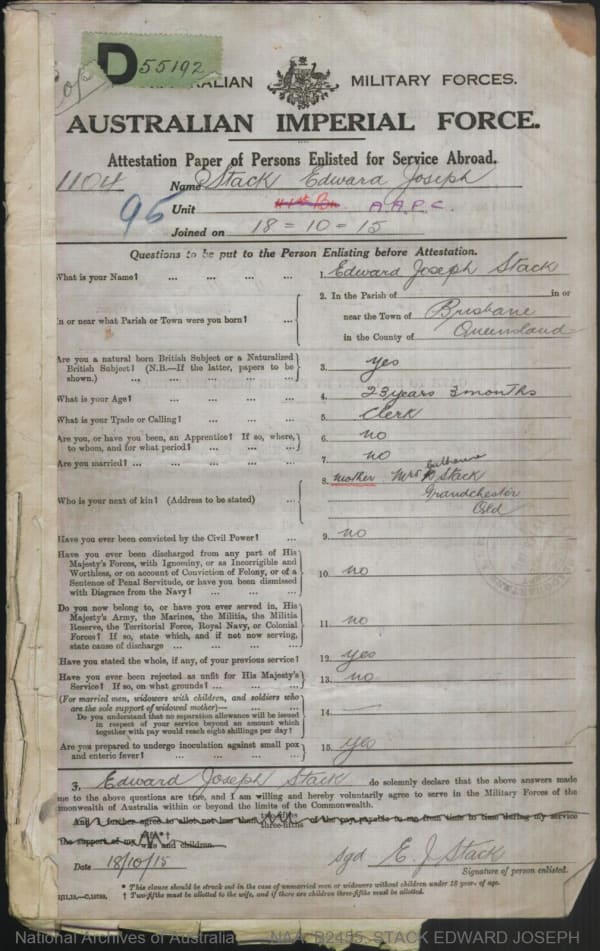 Cop
D 55192
AUSTRALIAN MILITARY FORCES.
AUSTRALIAN IMPERIAL FORCE.
Attestation Paper of Persons Enlisted for Service Abroad.
1104
Name Stack Edward Joseph
95
Unit 41st Bn. A.A.P.C.
Joined on 18 = 10 = 15
Questions to be put to the Person Enlisting before Attestation.
What is your Name? ... ... ... ... 1. Edward Joseph Stack
In or near what Parish or Town were you born? ... 2. In the Parish of in or
near the Town of Brisbane
in the County of Queensland
Are you a natural born British Subject or a Naturalized
British Subject? (N.B.—If the latter, papers to be
shown.) ... ... ... ... ... 3. yes
What is your Age? ... ... ... ... 4. 23 years 3 months
What is your Trade or Calling? ... ... ... 5. Clerk
Are you, or have you been, an Apprentice? If so, where,
to whom, and for what period? ... ... ... 6. no
Are you married? ... ... ... ... ... 7. no
Who is your next of kin? (Address to be stated) ... 8. mother Mrs Catherine Stack
Grandchester
Qld
Have you ever been convicted by the Civil Power? ... 9. no
Have you ever been discharged from any part of His
Majesty's Forces, with Ignominy, or as Incorrigible and
Worthless, or on account of Conviction of Felony, or of a
Sentence of Penal Servitude, or have you been dismissed
with Disgrace from the Navy? ... ... ... 10. no
Do you now belong to, or have you ever served in, His
Majesty's Army, the Marines, the Militia, the Militia
Reserve, the Territorial Force, Royal Navy, or Colonial
Forces? If so, state which, and if not now serving,
state cause of discharge ... ... ... ... 11. no
Have you stated the whole, if any, of your previous service? 12. yes
Have you ever been rejected as unfit for His Majesty's
Service? If so, on what grounds? ... ... ... 13. no
(For married men, widowers with children, and soldiers who
are the sole support of widowed mother)— ... ...
Do you understand that no separation allowance will be issued
in respect of your service beyond an amount which
together with pay would reach eight shillings per day? 14. —
Are you prepared to undergo inoculation against small pox
and enteric fever? ... ... ... ... 15. yes
I, Edward Joseph Stack do solemnly declare that the above answers made
me to the above questions are true, and I am willing and hereby voluntarily agree to serve in the Military Forces of the
monwealth of Australia within or beyond the limits of the Commonwealth.
And I further agree to allot not less than three-fifths of the pay payable to me from time to time during my service
the support of my wife and children.
Date 18/10/15 sgd E. J. Stack
Signature of person enlisted.
* This clause should be struck out in the case of unmarried men or widowers without children under 18 years of age.
† Two-fifths must be allotted to the wife, and if there are children three-fifths must be allotted.
National Archives of Australia NAA: B2455, STACK EDWARD JOSEPH